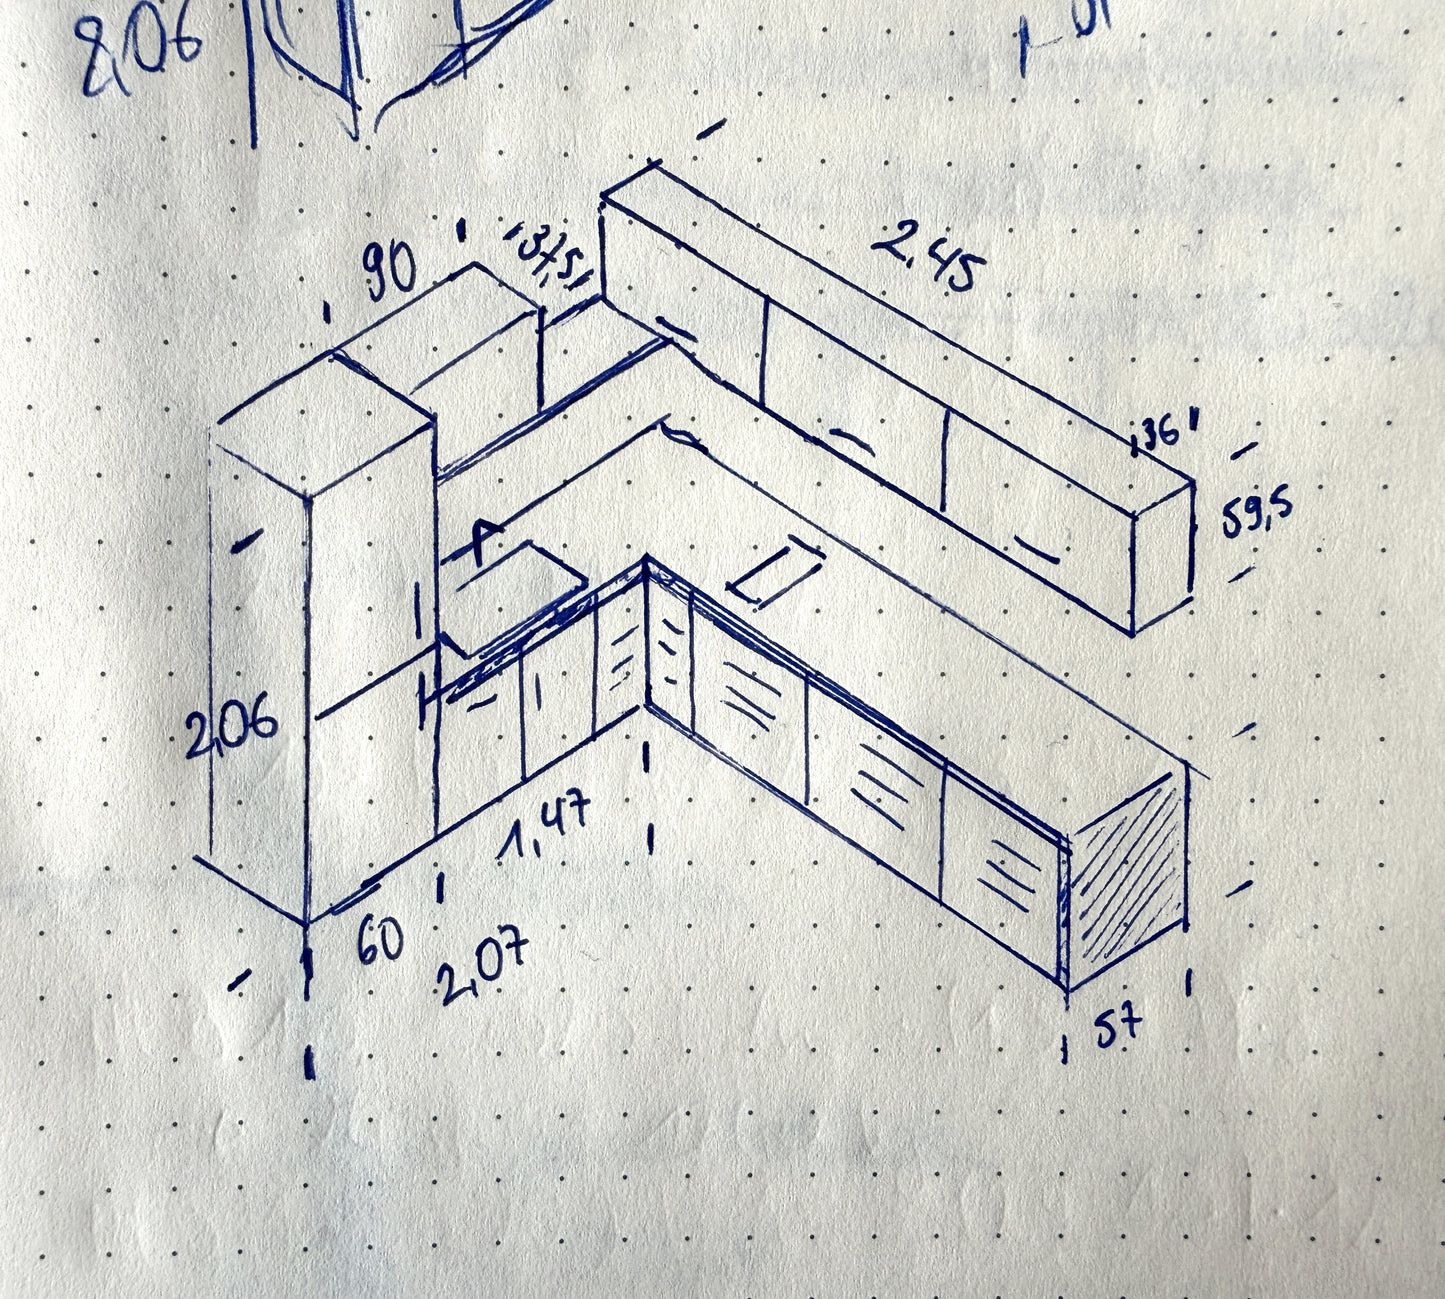 2,06
90
37,5
2,45
36
59,5
2,06
1,47
60
2,07
57